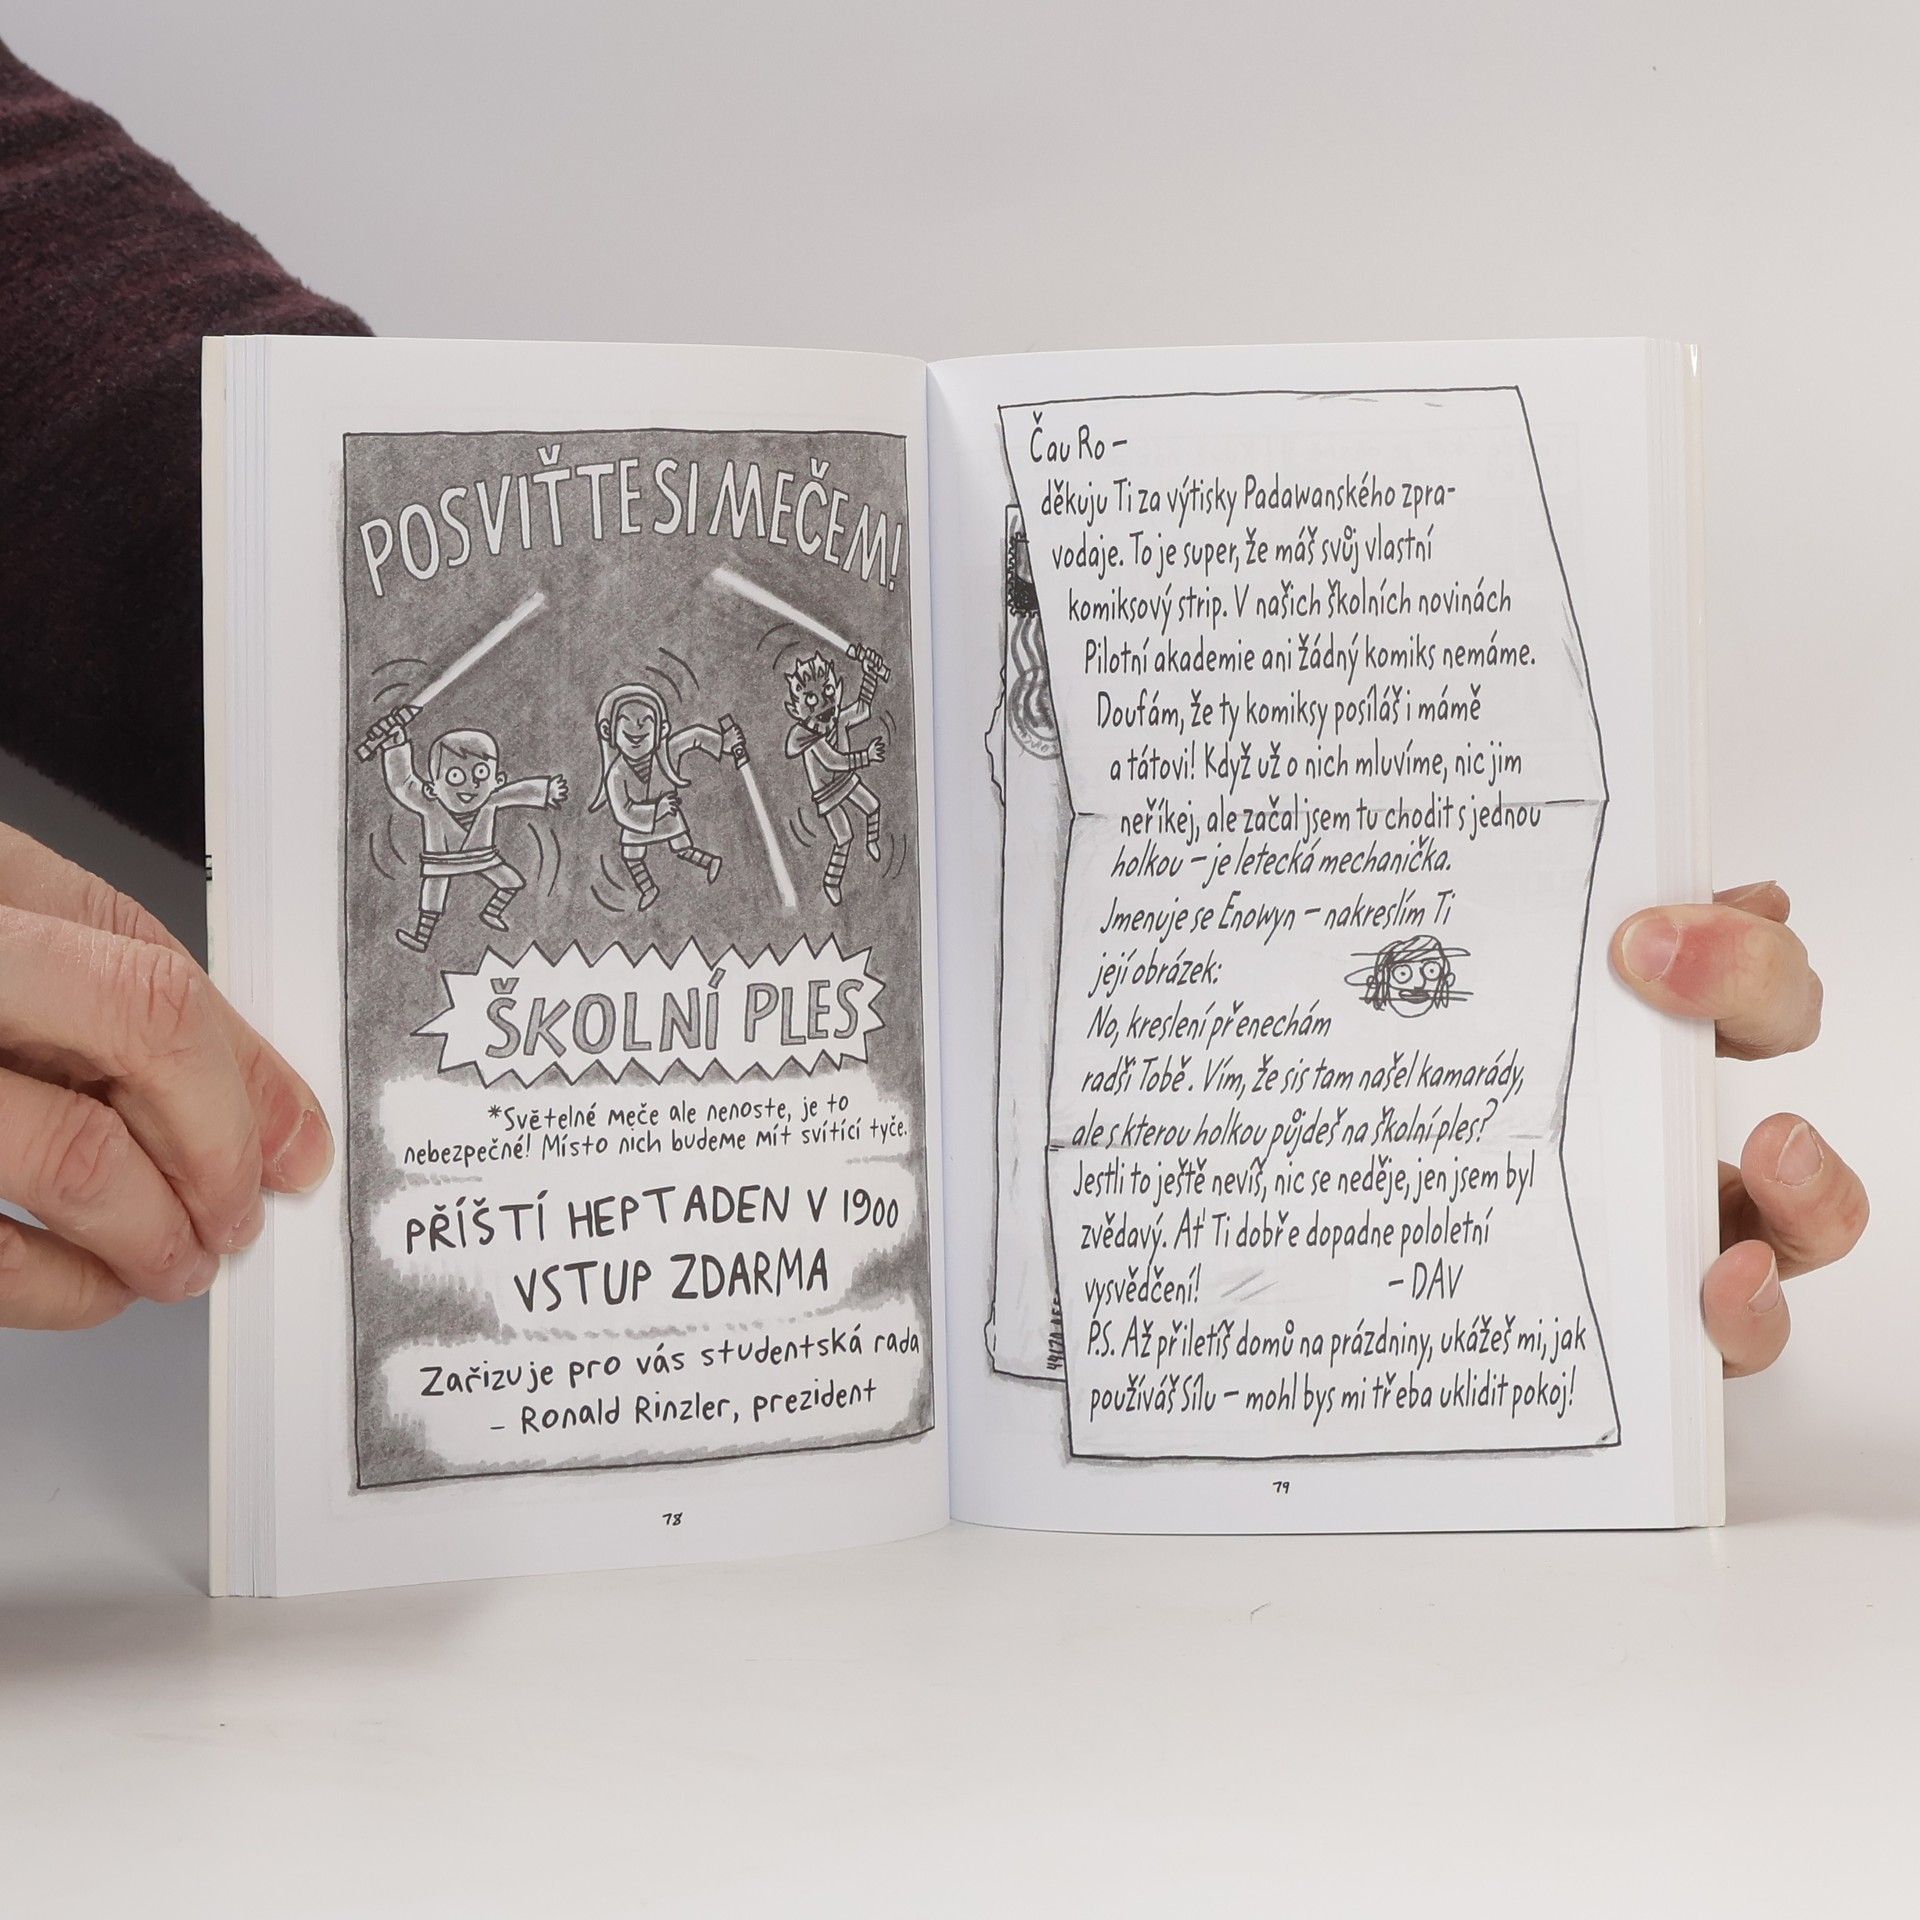 POSVIŤTE SI MEČEM!
ŠKOLNÍ PLES
*Světelné meče ale nenoste, je to
nebezpečné! Místo nich budeme mít svítící tyče.
PŘÍŠTÍ HEPTADEN V 1900
VSTUP ZDARMA
Zařizuje pro vás studentská rada
– Ronald Rinzler, prezident
78
Čau Ro –
děkuju Ti za výtisky Padawanského zpra-
vodaje. To je super, že máš svůj vlastní
komiksový strip. V našich školních novinách
Pilotní akademie ani žádný komiks nemáme.
Doufám, že ty komiksy posíláš i mámě
a tátovi! Když už o nich mluvíme, nic jim
neříkej, ale začal jsem tu chodit s jednou
holkou – je letecká mechanička.
Jmenuje se Enowyn – nakreslím Ti
její obrázek:
No, kreslení přenechám
radši Tobě. Vím, že sis tam našel kamarády,
ale s kterou holkou půjdeš na školní ples?
Jestli to ještě nevíš, nic se neděje, jen jsem byl
zvědavý. Ať Ti dobře dopadne pololetní
vysvědčení! – DAV
P.S. Až přiletíš domů na prázdniny, ukážeš mi, jak
používáš Sílu – mohl bys mi třeba uklidit pokoj!
79